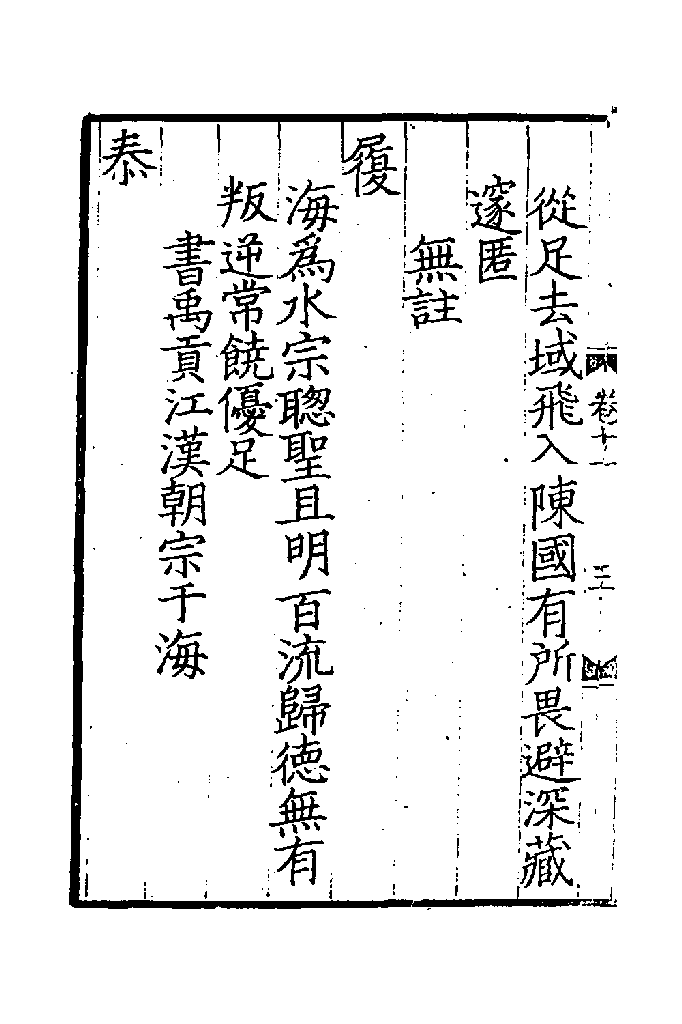 卷十一
三
從足去域飛入陳國有所畏避深藏
邃匿
無註
履
海爲水宗聰聖且明百流歸德無有
叛逆常饒優足
書禹貢江漢朝宗于海
泰